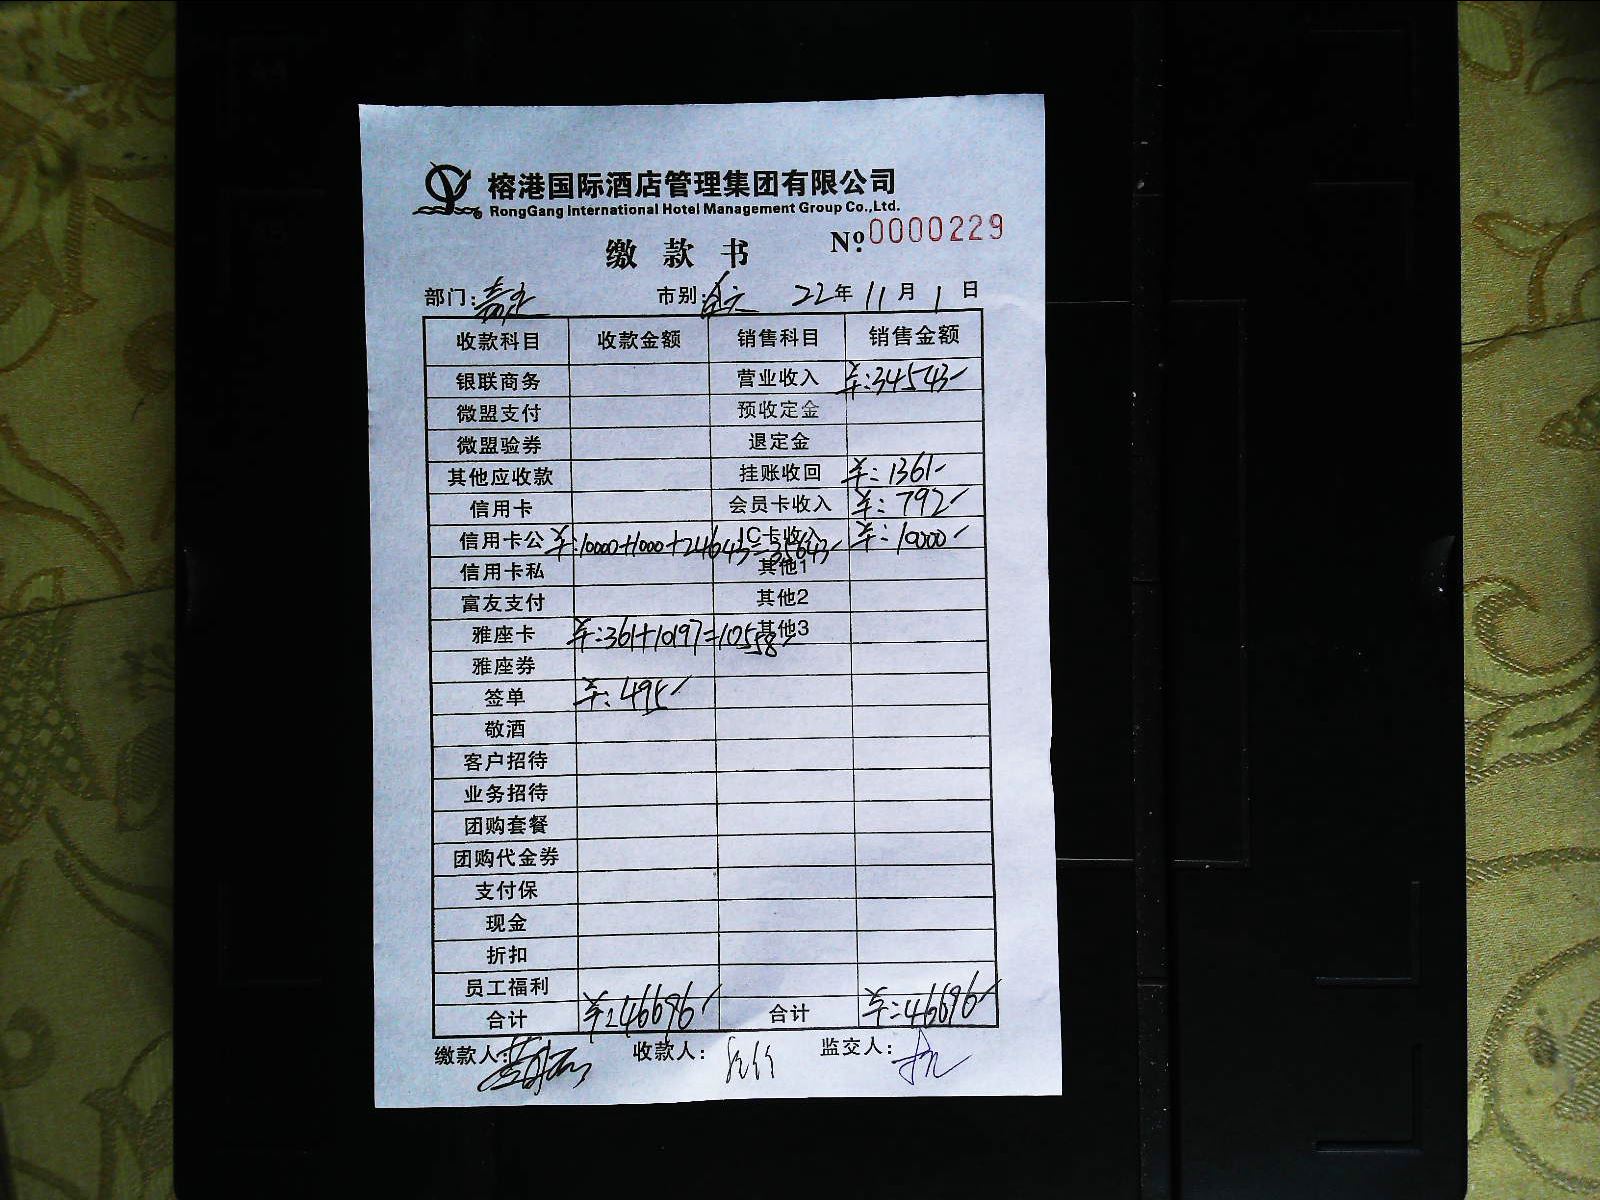 榕港国际酒店管理集团有限公司
RongGang International Hotel Management Group Co.,Ltd.
缴款书 Nº 0000229
部门: 嘉定 市别: 全天 22年11月1日
收款科目 收款金额 销售科目 销售金额
银联商务 营业收入 ¥:34543-
微盟支付 预收定金
微盟验券 退定金
其他应收款 挂账收回 ¥:1361-
信用卡 会员卡收入 ¥:792-
信用卡公 ¥:10000+1000+24643=35643- IC卡收入 ¥:10000-
信用卡私 其他1
富友支付 其他2
雅座卡 ¥:361+10197=10558- 其他3
雅座券
签单 ¥:495-
敬酒
客户招待
业务招待
团购套餐
团购代金券
支付保
现金
折扣
员工福利
合计 ¥:46696- 合计 ¥:46696-
缴款人: 收款人: 监交人: